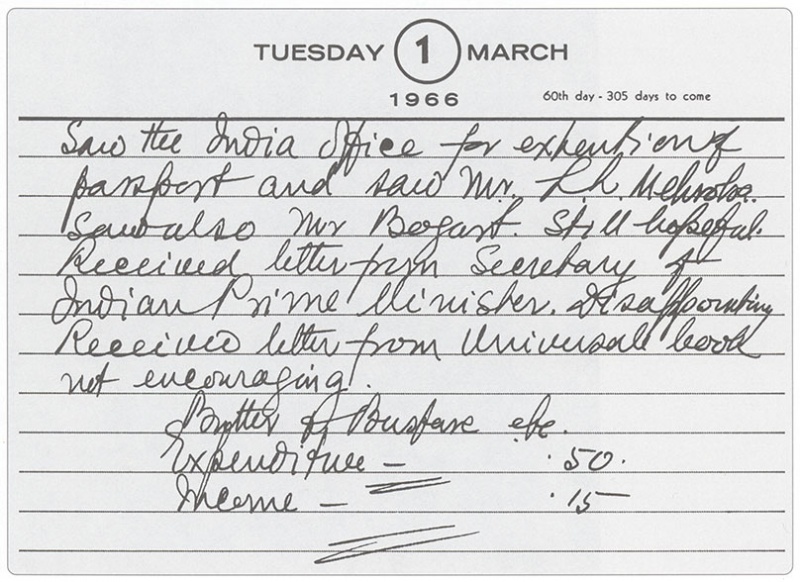 TUESDAY 1 MARCH
1966 60th day - 305 days to come
Saw the India Office for extention of
passport and saw Mr. L.L. Mehrotra.
Saw also Mr Bogart. Still hopeful.
Received letter from Secretary of
Indian Prime Minister. Disappointing
Received letter from Universal book
not encouraging.
Butter & Busfare etc.
Expenditure — .50.
Income — .15